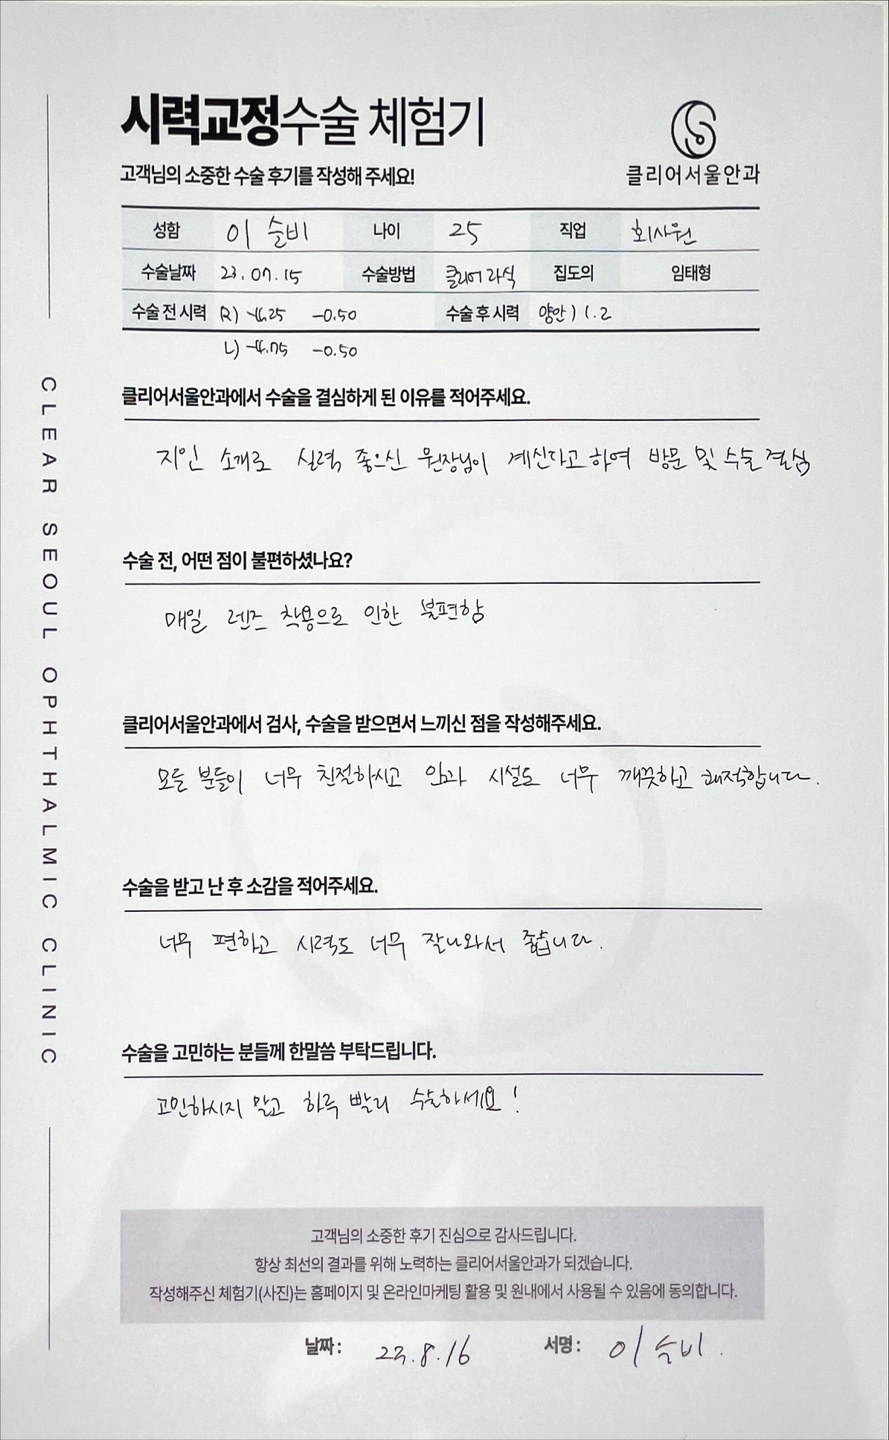 시력교정수술 체험기
고객님의 소중한 수술 후기를 작성해 주세요!
클리어서울안과
성함 이슬비 나이 25 직업 회사원
수술날짜 23.07.15 수술방법 클리어라식 집도의 임태형
수술 전 시력 R) -4.25 -0.50 수술 후 시력 양안) 1.2
L) -4.75 -0.50
CLEAR SEOUL OPHTHALMIC CLINIC
클리어서울안과에서 수술을 결심하게 된 이유를 적어주세요.
지인 소개로 실력 좋으신 원장님이 계신다고 하여 방문 및 수술 결심
수술 전, 어떤 점이 불편하셨나요?
매일 렌즈 착용으로 인한 불편함
클리어서울안과에서 검사, 수술을 받으면서 느끼신 점을 작성해주세요.
모든 분들이 너무 친절하시고 안과 시설도 너무 깨끗하고 쾌적합니다.
수술을 받고 난 후 소감을 적어주세요.
너무 편하고 시력도 너무 잘나와서 좋습니다.
수술을 고민하는 분들께 한말씀 부탁드립니다.
고민하시지 말고 하루 빨리 수술하세요!
고객님의 소중한 후기 진심으로 감사드립니다.
항상 최선의 결과를 위해 노력하는 클리어서울안과가 되겠습니다.
작성해주신 체험기(사진)는 홈페이지 및 온라인마케팅 활용 및 원내에서 사용될 수 있음에 동의합니다.
날짜 : 23.8.16 서명 : 이슬비.